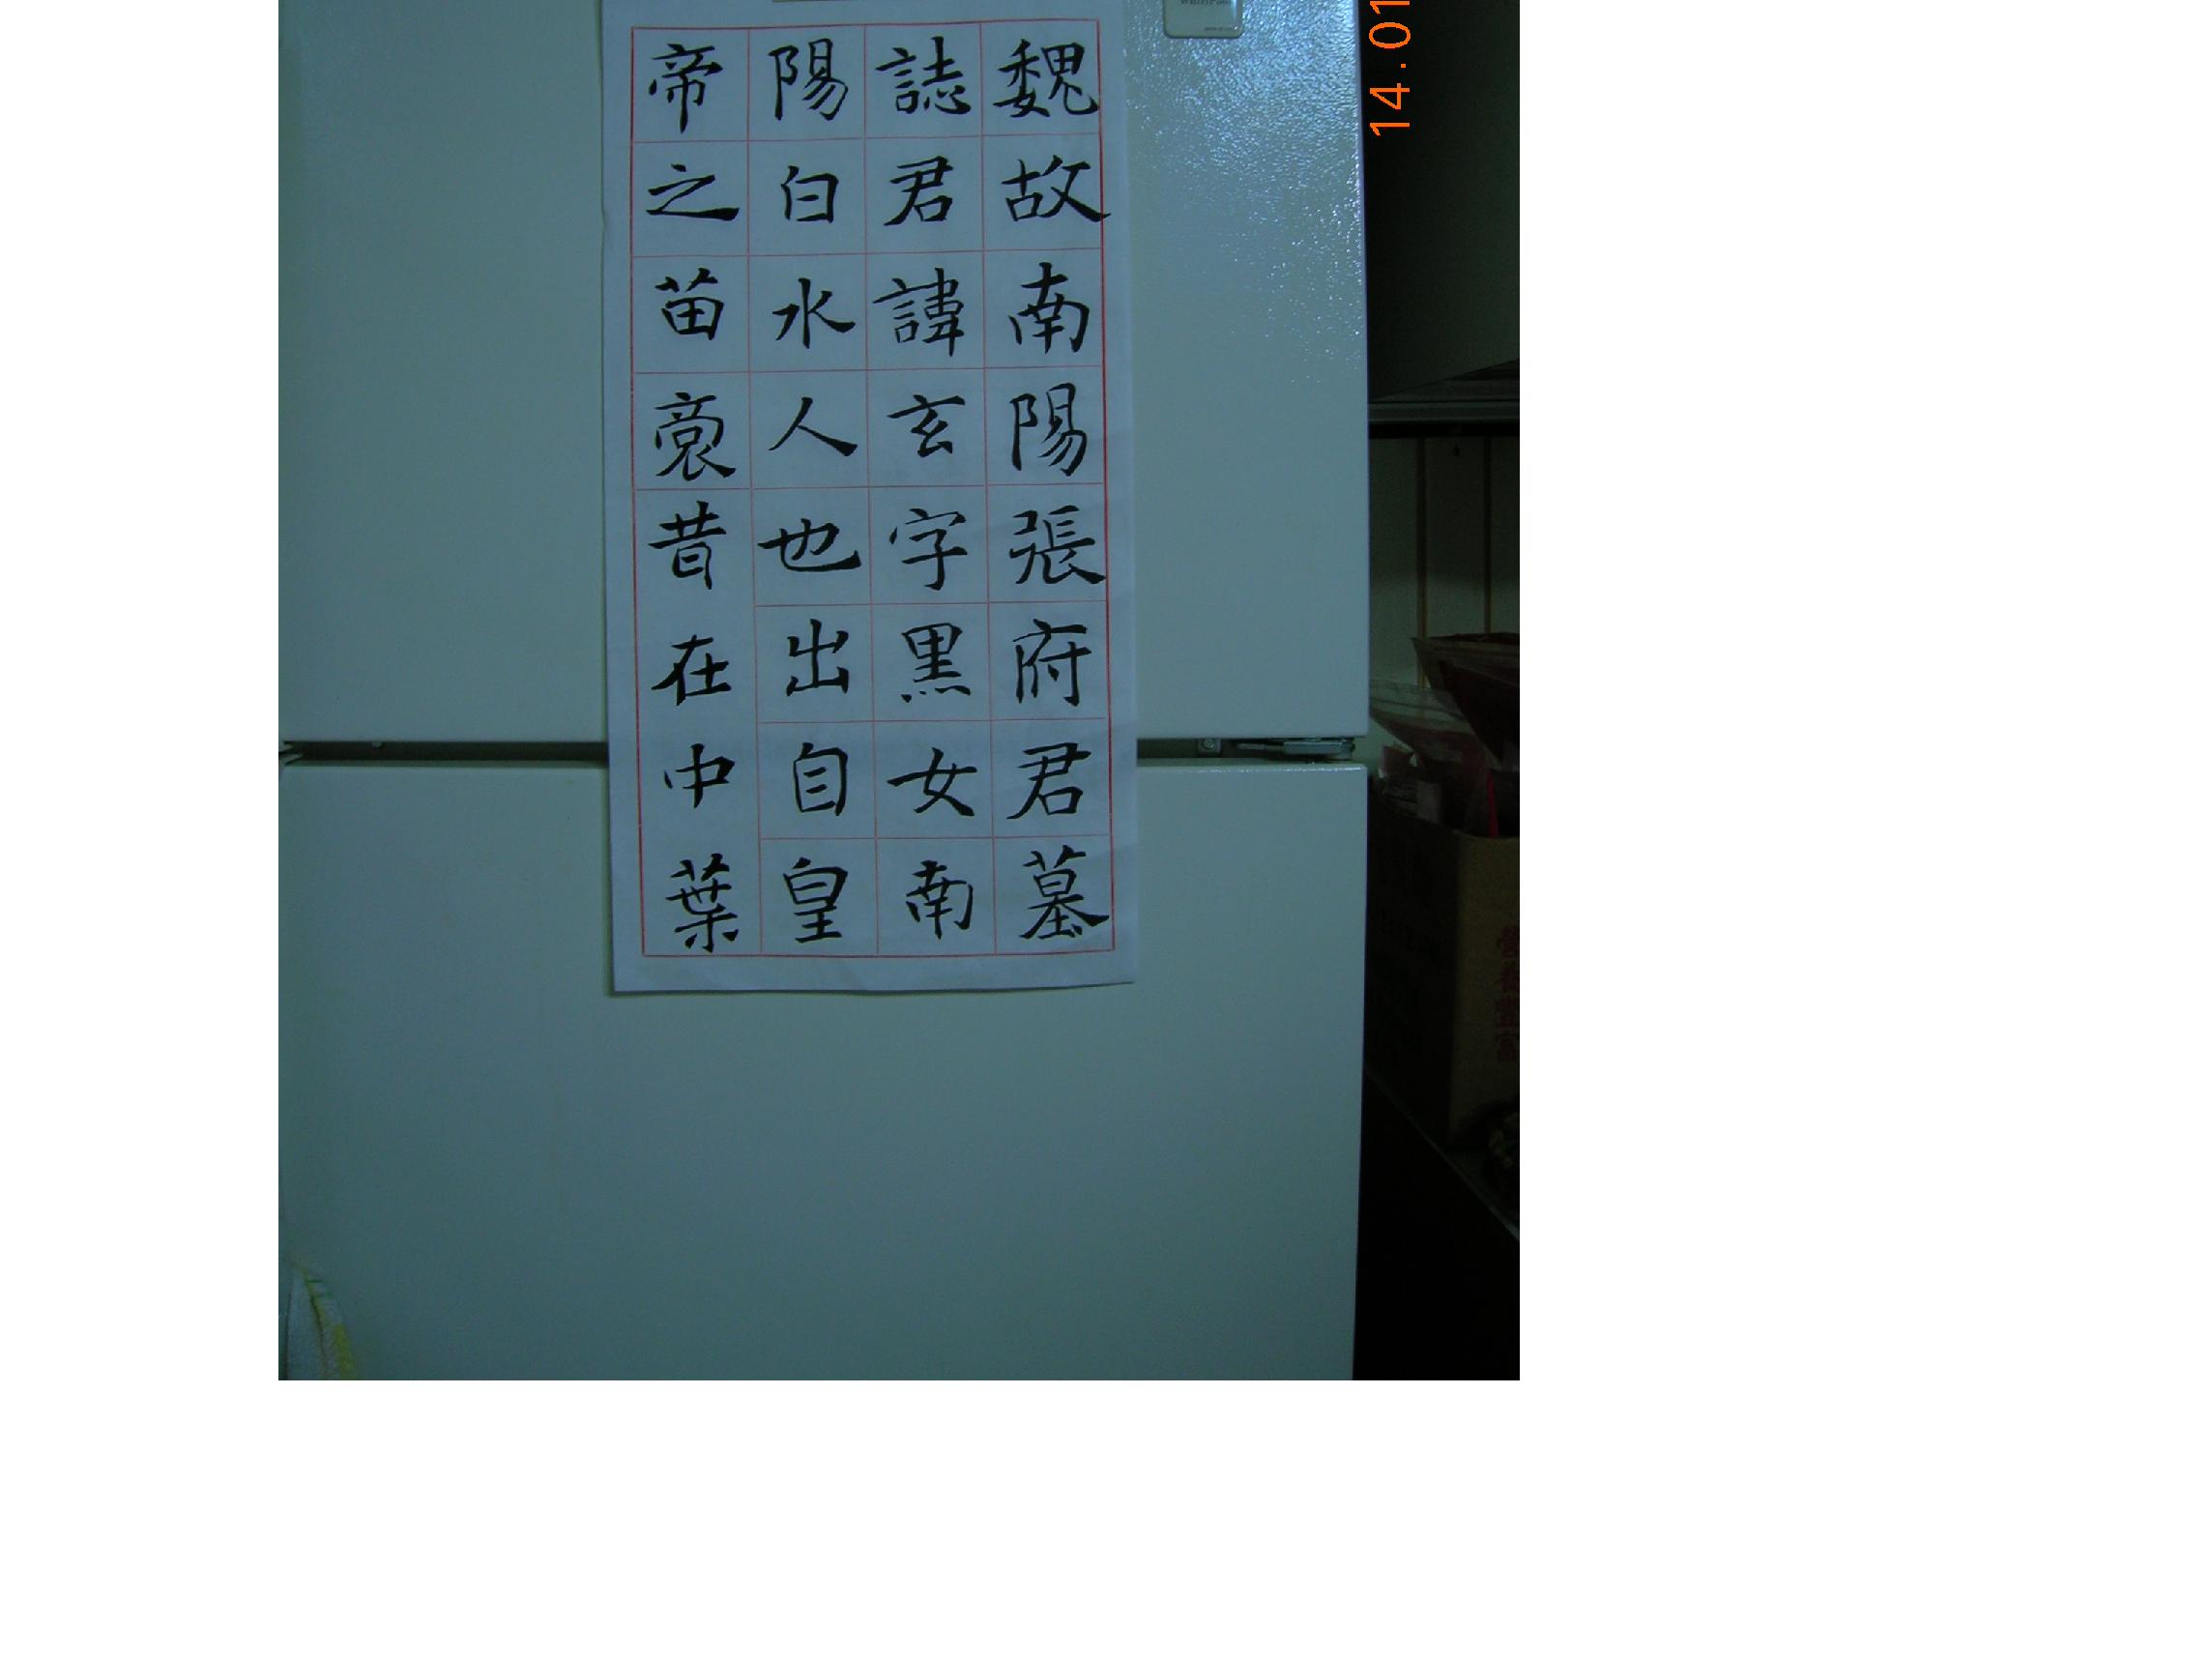 魏故南陽張府君墓
誌君諱玄字黑女南
陽白水人也出自皇
帝之苗裔昔在中葉
14.01